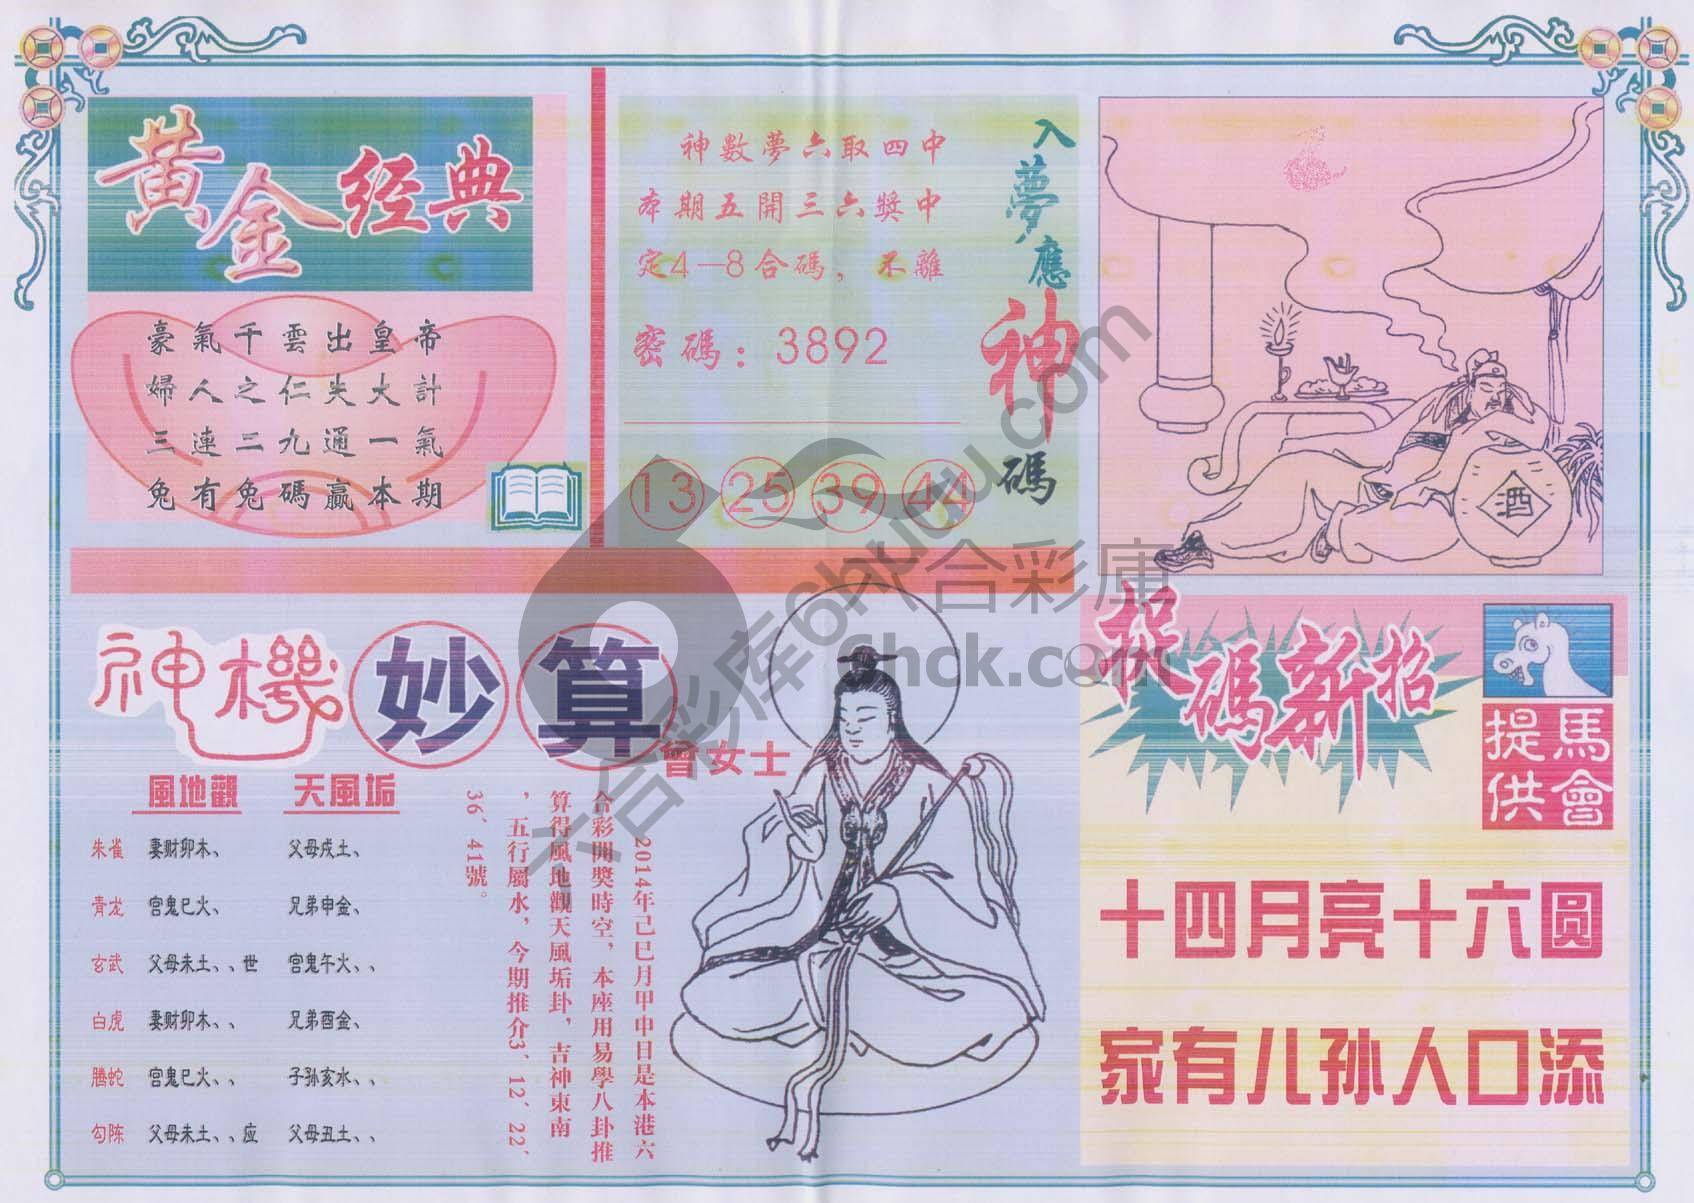 黄金经典
豪氣千雲出皇帝
婦人之仁失大計
三連二九通一氣
兔有兔碼贏本期
神數夢六取四中
本期五開三六獎中
定4—8合碼，不離
密碼：3892
13 25 39 44
入夢應神碼
酒
神機妙算
曾女士
風地觀 天風垢
朱雀 妻财卯木、 父母戌土、
青龙 宫鬼巳火、 兄弟申金、
玄武 父母未土、、世 宫鬼午火、、
白虎 妻财卯木、、 兄弟酉金、
腾蛇 宫鬼巳火、、 子孙亥水、、
勾陈 父母未土、、应 父母丑土、、
2014年己巳月甲申日是本港六
合彩開獎時空，本座用易學八卦推
算得風地觀天風垢卦，吉神東南
，五行屬水，今期推介3、12、22、
36、41號。
捉碼新招
馬會提供
十四月亮十六圆
家有儿孙人口添
六合彩库6hudu.com
六合彩庫
6hck.com